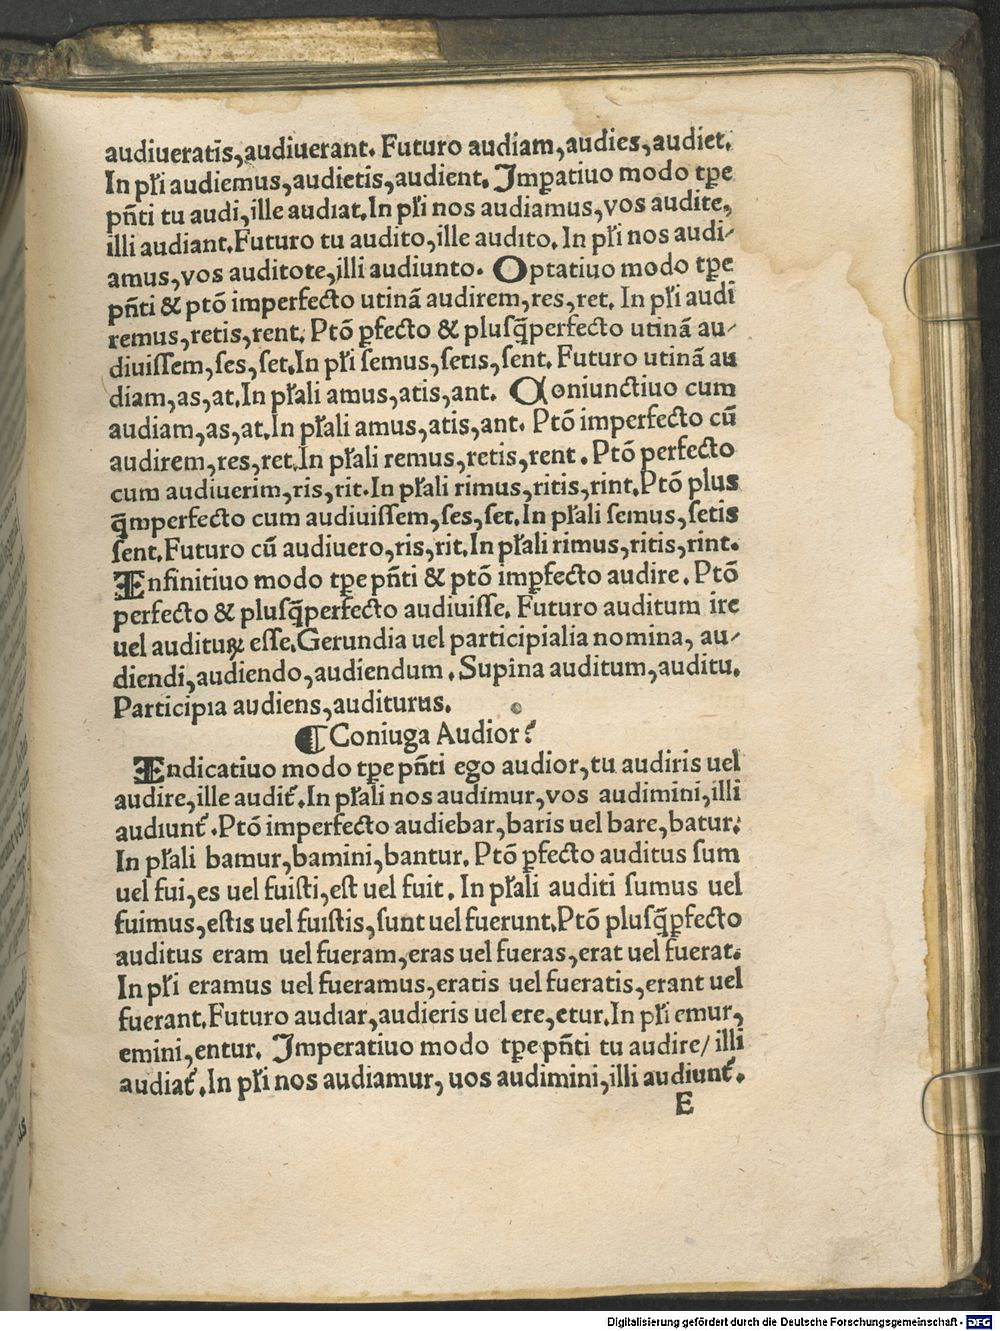 audiueratis,audiuerant. Futuro audiam,audies,audiet.
In płi audiemus,audietis,audient. Imꝑatiuo modo tꝑe
pñti tu audi,ille audiat.In płi nos audiamus,vos audite,
illi audiant.Futuro tu audito,ille audito. In płi nos audi⸗
amus,vos auditote,illi audiunto. Optatiuo modo tꝑe
pñti & ptō imperfecto utinā audirem,res,ret. In płi audi
remus,retis,rent. Ptō ꝑfecto & plusq̄perfecto utinā au⸗
diuiſſem,ſes,ſet.In płi ſemus,ſetis,ſent. Futuro utinā au
diam,as,at.In płali amus,atis,ant. Coniunctiuo cum
audiam,as,at.In płali amus,atis,ant. Ptō imperfecto cū
audirem,res,ret.In płali remus,retis,rent. Ptō perfecto
cum audiuerim,ris,rit.In płali rimus,ritis,rint.Ptō plus
q̄mperfecto cum audiuiſſem,ſes,ſet.In płali ſemus,ſetis
ſent.Futuro cū audiuero,ris,rit.In płali rimus,ritis,rint.
Infinitiuo modo tꝑe pñti & ptō imꝑfecto audire. Ptō
perfecto & pluſq̄perfecto audiuiſſe. Futuro auditum ire
uel audituꝝ eſſe.Gerundia uel participialia nomina, au⸗
diendi,audiendo,audiendum. Supina auditum,auditu.
Participia audiens,auditurus.
¶ Coniuga Audior:
Indicatiuo modo tꝑe pñti ego audior,tu audiris uel
audire,ille audit̃.In płali nos audimur,vos audimini,illi
audiunt̃.Ptō imperfecto audiebar,baris uel bare,batur:
In płali bamur,bamini,bantur. Ptō ꝑfecto auditus ſum
uel fui,es uel fuiſti,eſt uel fuit. In płali auditi ſumus uel
fuimus,eſtis uel fuiſtis,ſunt uel fuerunt.Ptō pluſq̄ꝑfecto
auditus eram uel fueram,eras uel fueras,erat uel fuerat.
In płi eramus uel fueramus,eratis uel fueratis,erant uel
fuerant.Futuro audiar,audieris uel ere,etur.In płi emur,
emini,entur. Imperatiuo modo tꝑe pñti tu audire/ illi
audiat̃.In płi nos audiamur, uos audimini,illi audiunt̃.
E
Digitalisierung gefördert durch die Deutsche Forschungsgemeinschaft - DFG